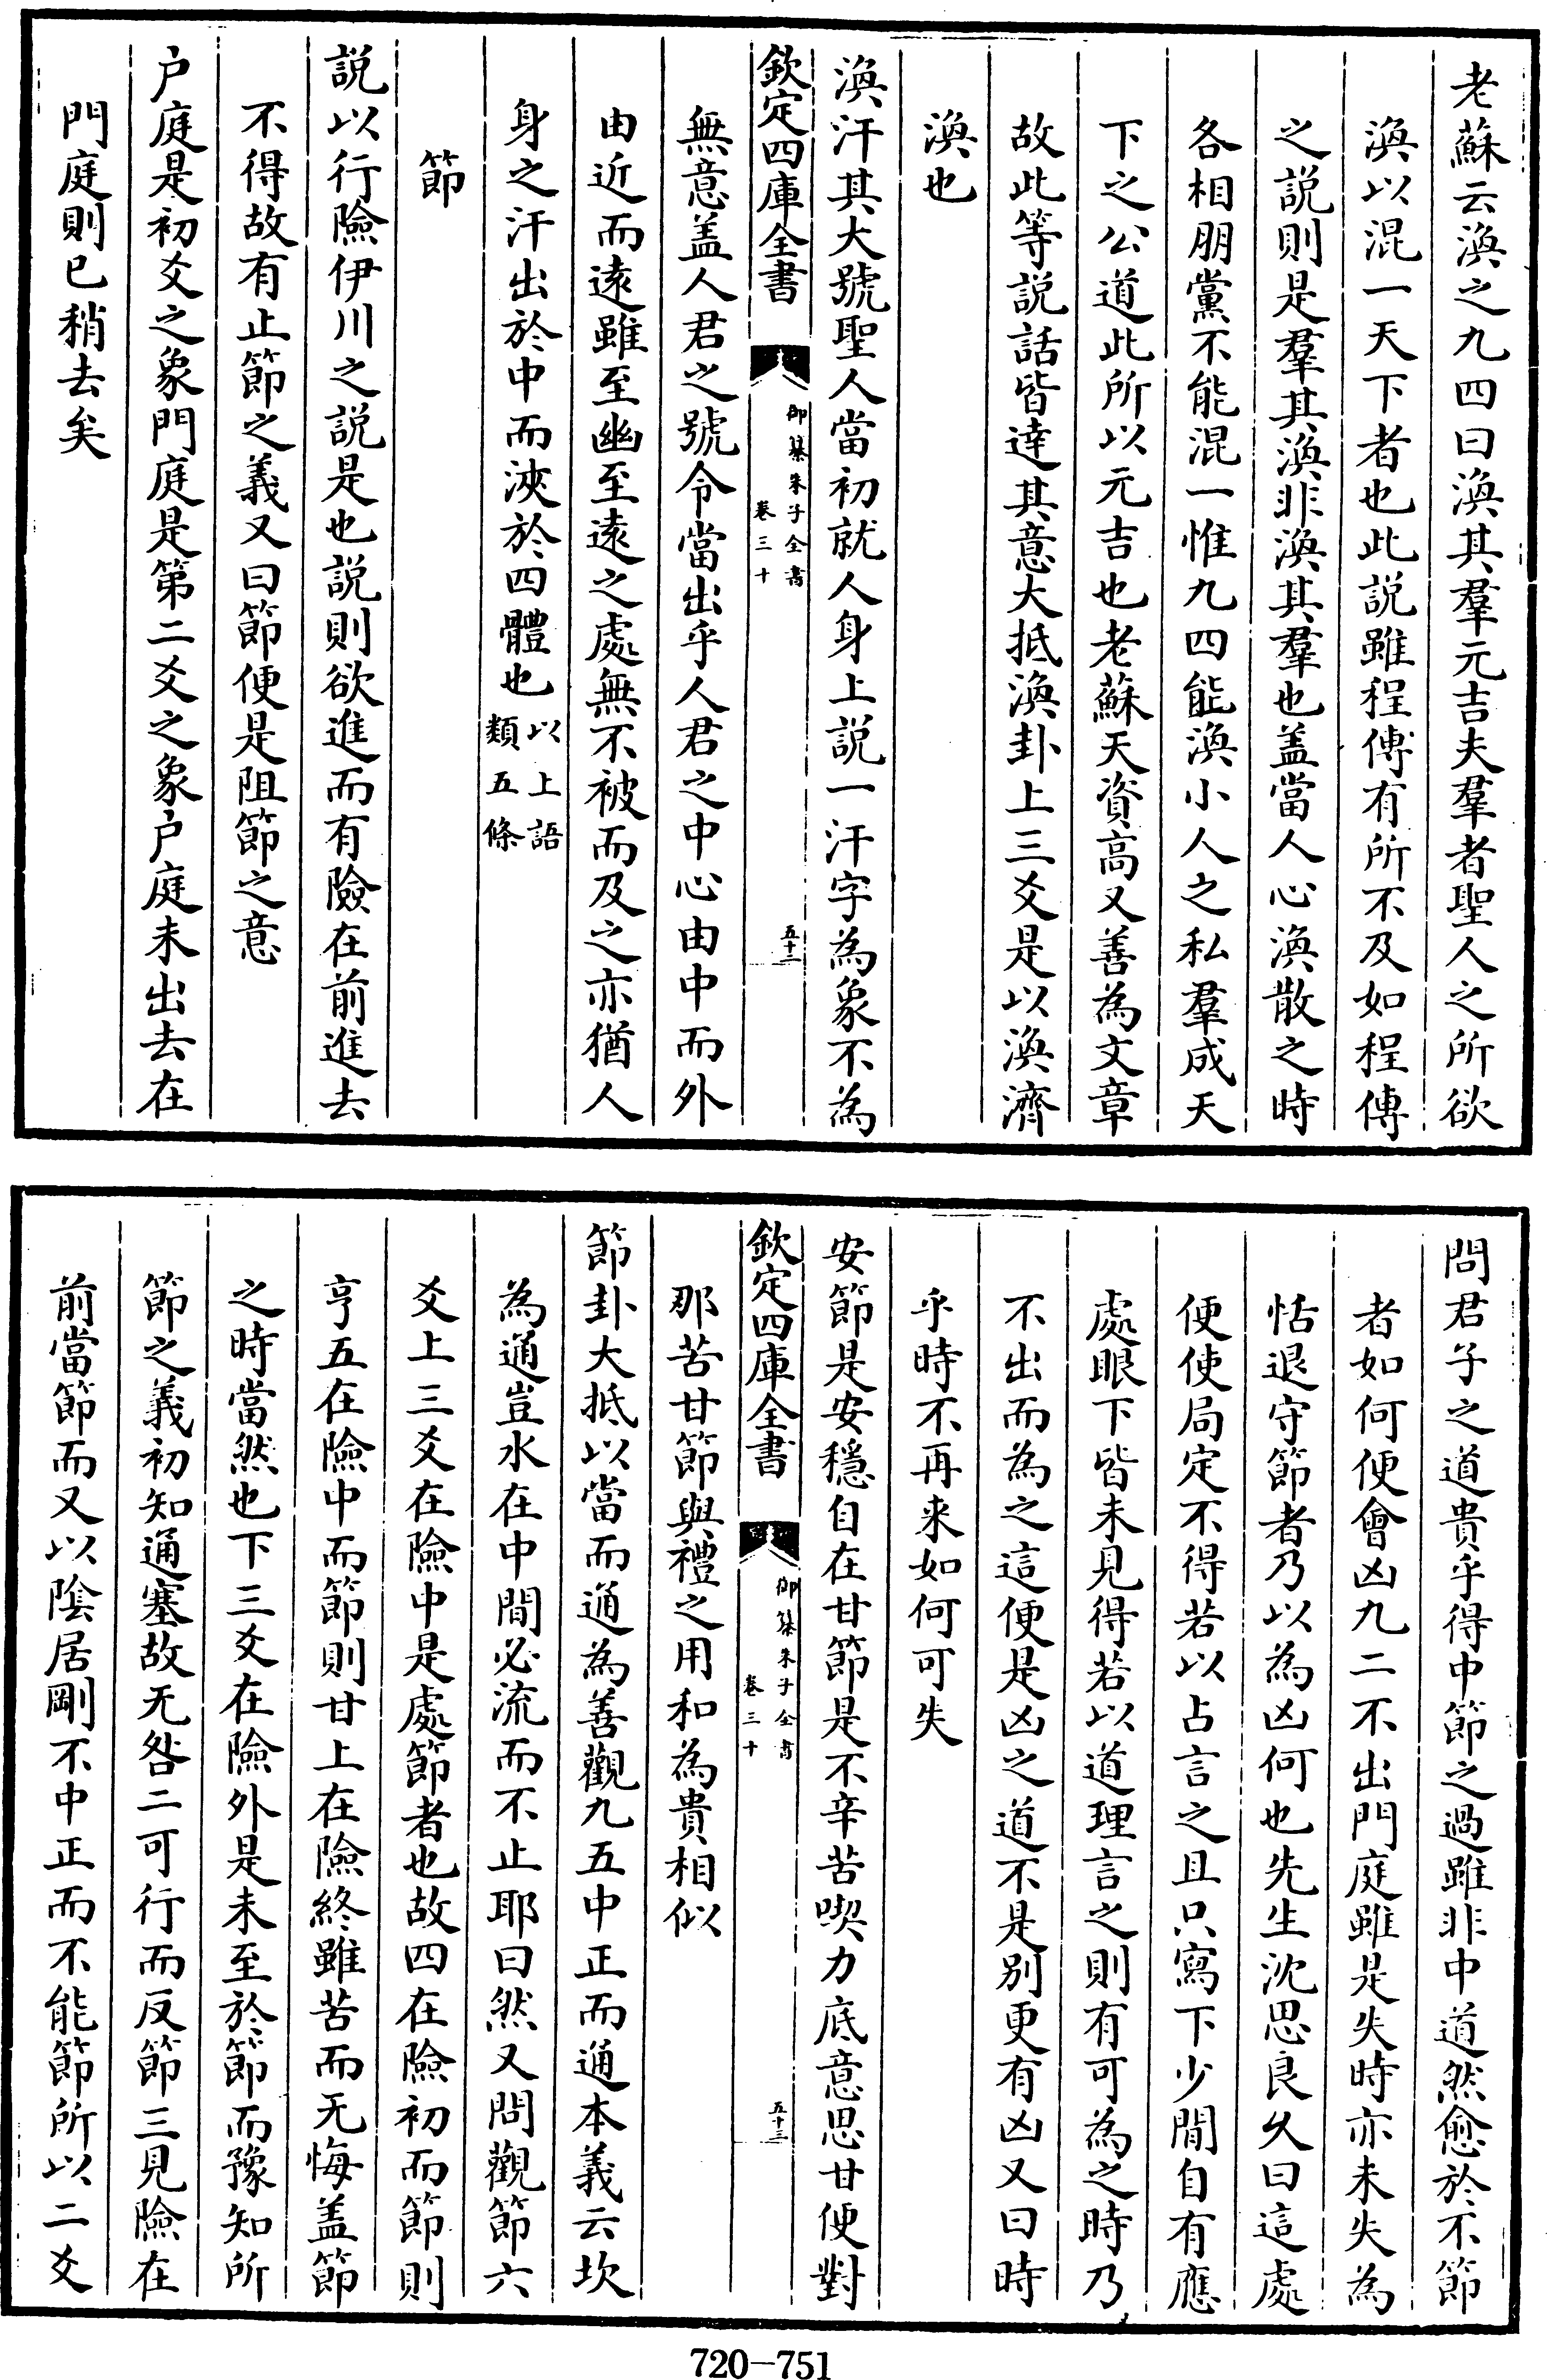 老蘇云渙之九四曰渙其羣元吉夫羣者聖人之所欲
渙以混一天下者也此説雖程傅有所不及如程傅
之説則是羣其渙非渙其羣也盖當人心渙散之時
各相朋黨不能混一惟九四能渙小人之私羣成天
下之公道此所以元吉也老蘇天資高又善為文章
故此等説話皆達其意大抵渙卦上三爻是以渙濟
渙也
渙汗其大號聖人當初就人身上説一汗字為象不為
欽定四庫全書
御纂朱子全書
卷三十
五十二
無意盖人君之號令當出乎人君之中心由中而外
由近而遠雖至幽至遠之處無不被而及之亦猶人
身之汗出於中而浹於四體也以上語
類五條
節
説以行險伊川之説是也説則欲進而有險在前進去
不得故有止節之義又曰節便是阻節之意
户庭是初爻之象門庭是第二爻之象户庭未出去在
門庭則已稍去矣
問君子之道貴乎得中節之過雖非中道然愈於不節
者如何便會凶九二不出門庭雖是失時亦未失為
恬退守節者乃以為凶何也先生沈思良久曰這處
便使局定不得若以占言之且只寫下少間自有應
處眼下皆未見得若以道理言之則有可為之時乃
不出而為之這便是凶之道不是別更有凶又曰時
乎時不再来如何可失
安節是安穩自在甘節是不辛苦喫力底意思甘便對
欽定四庫全書
御纂朱子全書
卷三十
五十三
那苦甘節與禮之用和為貴相似
節卦大抵以當而通為善觀九五中正而通本義云坎
為通豈水在中間必流而不止耶曰然又問觀節六
爻上三爻在險中是處節者也故四在險初而節則
亨五在險中而節則甘上在險終雖苦而无悔盖節
之時當然也下三爻在險外是未至於節而豫知所
節之義初知通塞故无咎二可行而反節三見險在
前當節而又以陰居剛不中正而不能節所以二爻
720-751